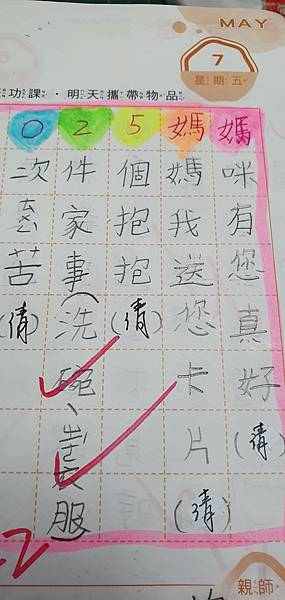 MAY
7
星期五
功課・明天攜帶物品
媽咪有您真好
媽媽我送您卡片
5個抱抱
2件家事(洗碗、衣服)
0次苦
親師